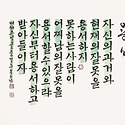 자신의 과거와
현재의 잘못을
용서하지
못하는 사람이
어찌 남의 잘못을
용서할 수 있으랴
자신부터 용서하고
받아들이자